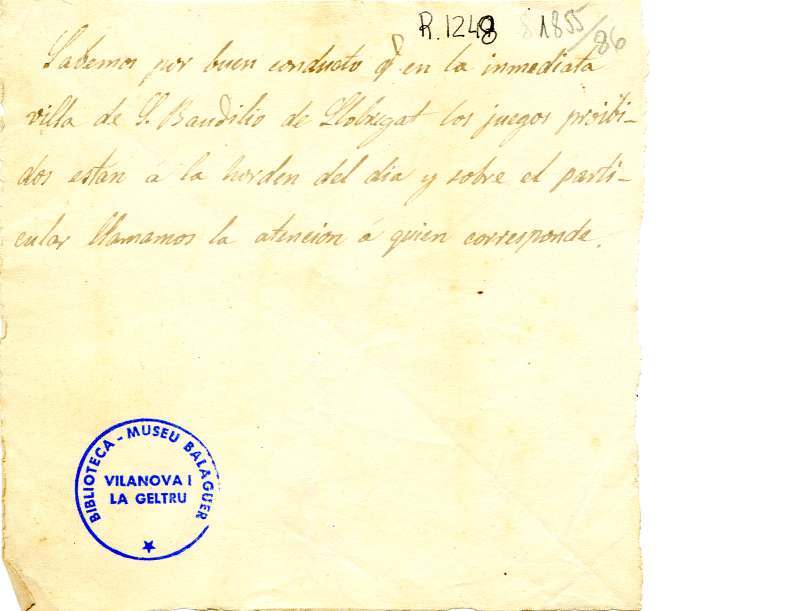 R.1248 81855/86
Sabemos por buen conducto q en la inmediata
villa de S. Baudilio de Llobregat los juegos proibi-
dos están á la horden del dia y sobre el parti-
cular llamamos la atencion á quien corresponde.
BIBLIOTECA - MUSEU BALAGUER
VILANOVA I
LA GELTRU